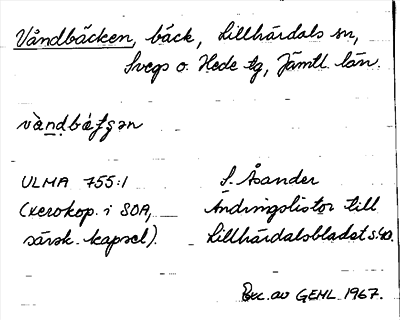 Våndbäcken, bäck, Lillhärdals sn,
Svegs o. Hede tg, Jämtl. län.
ULMA 755:1
(xerokop. i SOA,
särsk. kapsel).
S. Åsander
Ändringslistor till
Lillhärdalsbladet s.40.
Exc. av GEHL 1967.